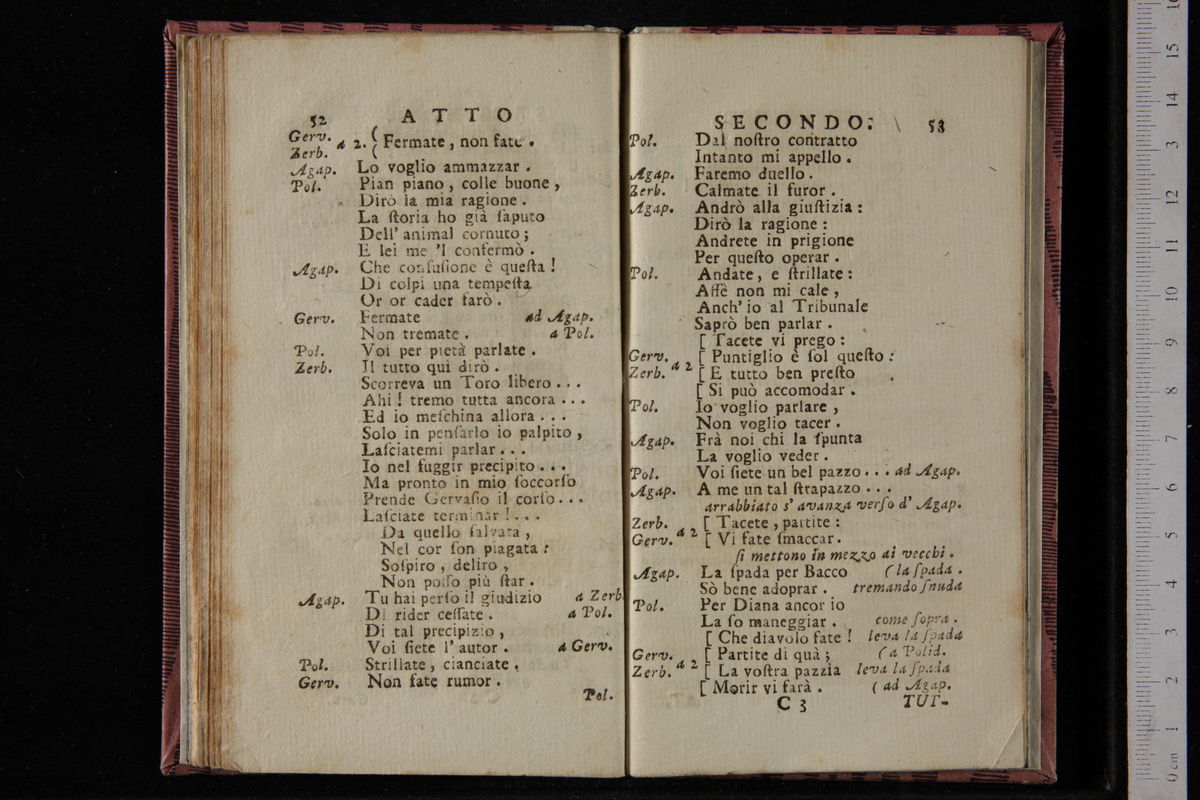 52 ATTO
Gerv.
Zerb. a 2. { Fermate, non fate.
Agap. Lo voglio ammazzar.
Pol. Pian piano, colle buone,
Dirò la mia ragione.
La ſtoria ho già ſaputo
Dell' animal cornuto;
E lei me 'l confermò.
Agap. Che confuſione è queſta!
Di colpi una tempeſta
Or or cader farò.
Gerv. Fermate ad Agap.
Non tremate. a Pol.
Pol. Voi per pietà parlate.
Zerb. Il tutto qui dirò.
Scorreva un Toro libero...
Ahi! tremo tutta ancora...
Ed io meſchina allora...
Solo in penſarlo io palpito,
Laſciatemi parlar...
Io nel fuggir precipito...
Ma pronto in mio ſoccorſo
Prende Gervaſio il corſo...
Laſciate terminar!...
Da quello ſalvata,
Nel cor ſon piagata:
Soſpiro, deliro,
Non poſſo più ſtar.
Agap. Tu hai perſo il giudizio a Zerb.
Di rider ceſſate. a Pol.
Di tal precipizio,
Voi ſiete l' autor. a Gerv.
Pol. Strillate, cianciate,
Gerv. Non fate rumor.
Pol.
SECONDO. 53
Pol. Dal noſtro contratto
Intanto mi appello.
Agap. Faremo duello.
Zerb. Calmate il furor.
Agap. Andrò alla giuſtizia:
Dirò la ragione:
Andrete in prigione
Per queſto operar.
Pol. Andate, e ſtrillate:
Affè non mi cale,
Anch' io al Tribunale
Saprò ben parlar.
[ Tacete vi prego:
Gerv. [ Puntiglio è ſol queſto:
Zerb. a 2 [ E tutto ben preſto
[ Si può accomodar.
Pol. Io voglio parlare,
Non voglio tacer.
Agap. Frà noi chi la ſpunta
La voglio veder.
Pol. Voi ſiete un bel pazzo... ad Agap.
Agap. A me un tal ſtrapazzo...
arrabbiato s' avanza verſo d' Agap.
Zerb. [ Tacete, partite:
Gerv. a 2 [ Vi fate ſmaccar.
ſi mettono in mezzo ai vecchi.
Agap. La ſpada per Bacco ( la ſpada.
Sò bene adoprar. tremando ſnuda
Pol. Per Diana ancor io
La ſo maneggiar. come ſopra.
[ Che diavolo fate! leva la ſpada
Gerv. [ Partite di quà; ( a Polid.
Zerb. a 2 [ La voſtra pazzìa leva la ſpada
[ Morir vi farà. ( ad Agap.
C 3 TUT-